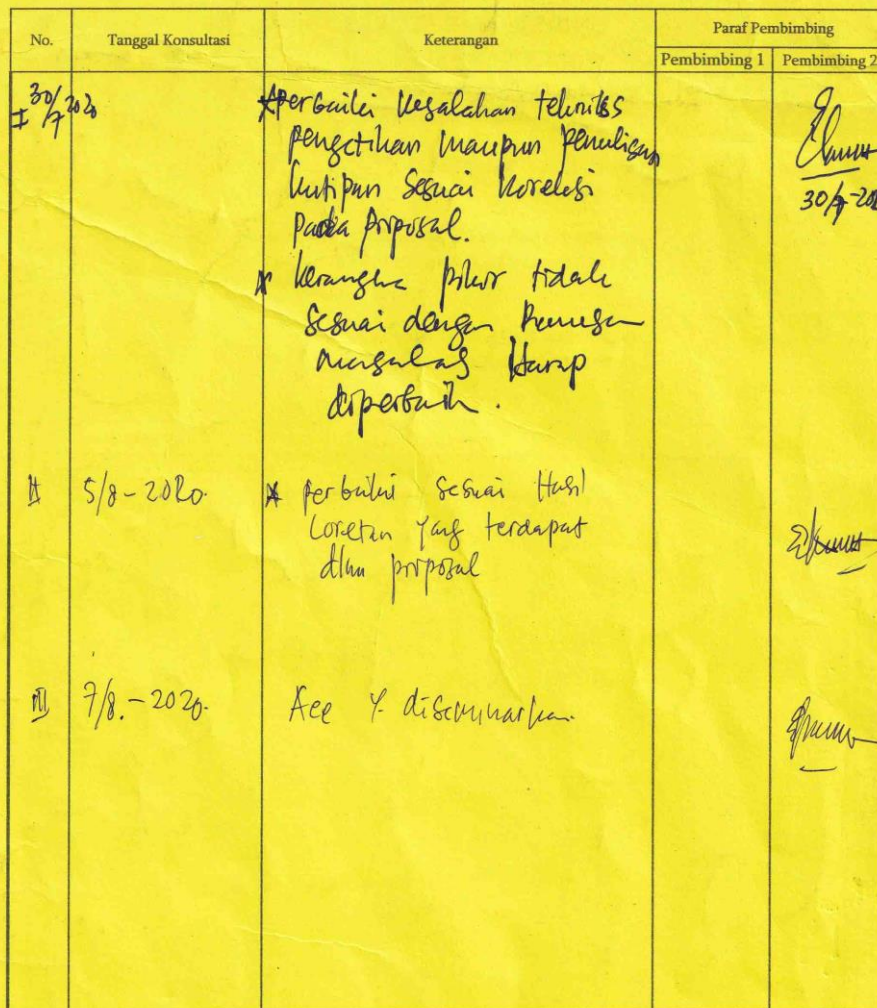 No. Tanggal Konsultasi Keterangan Paraf Pembimbing
Pembimbing 1 Pembimbing 2
I 30/7 2020 * Perbaiki kesalahan teknis
pengetikan maupun penulisan
kutipan sesuai koreksi
pada proposal.
* kerangka pikir tidak
sesuai dengan Rumusan
masalah Harap
diperbaiki.
30/7-202
II 5/8-2020. * perbaiki sesuai Hasil
Coretan yang terdapat
dlm proposal
III 7/8.-2020. Acc Y. diseminarkan.